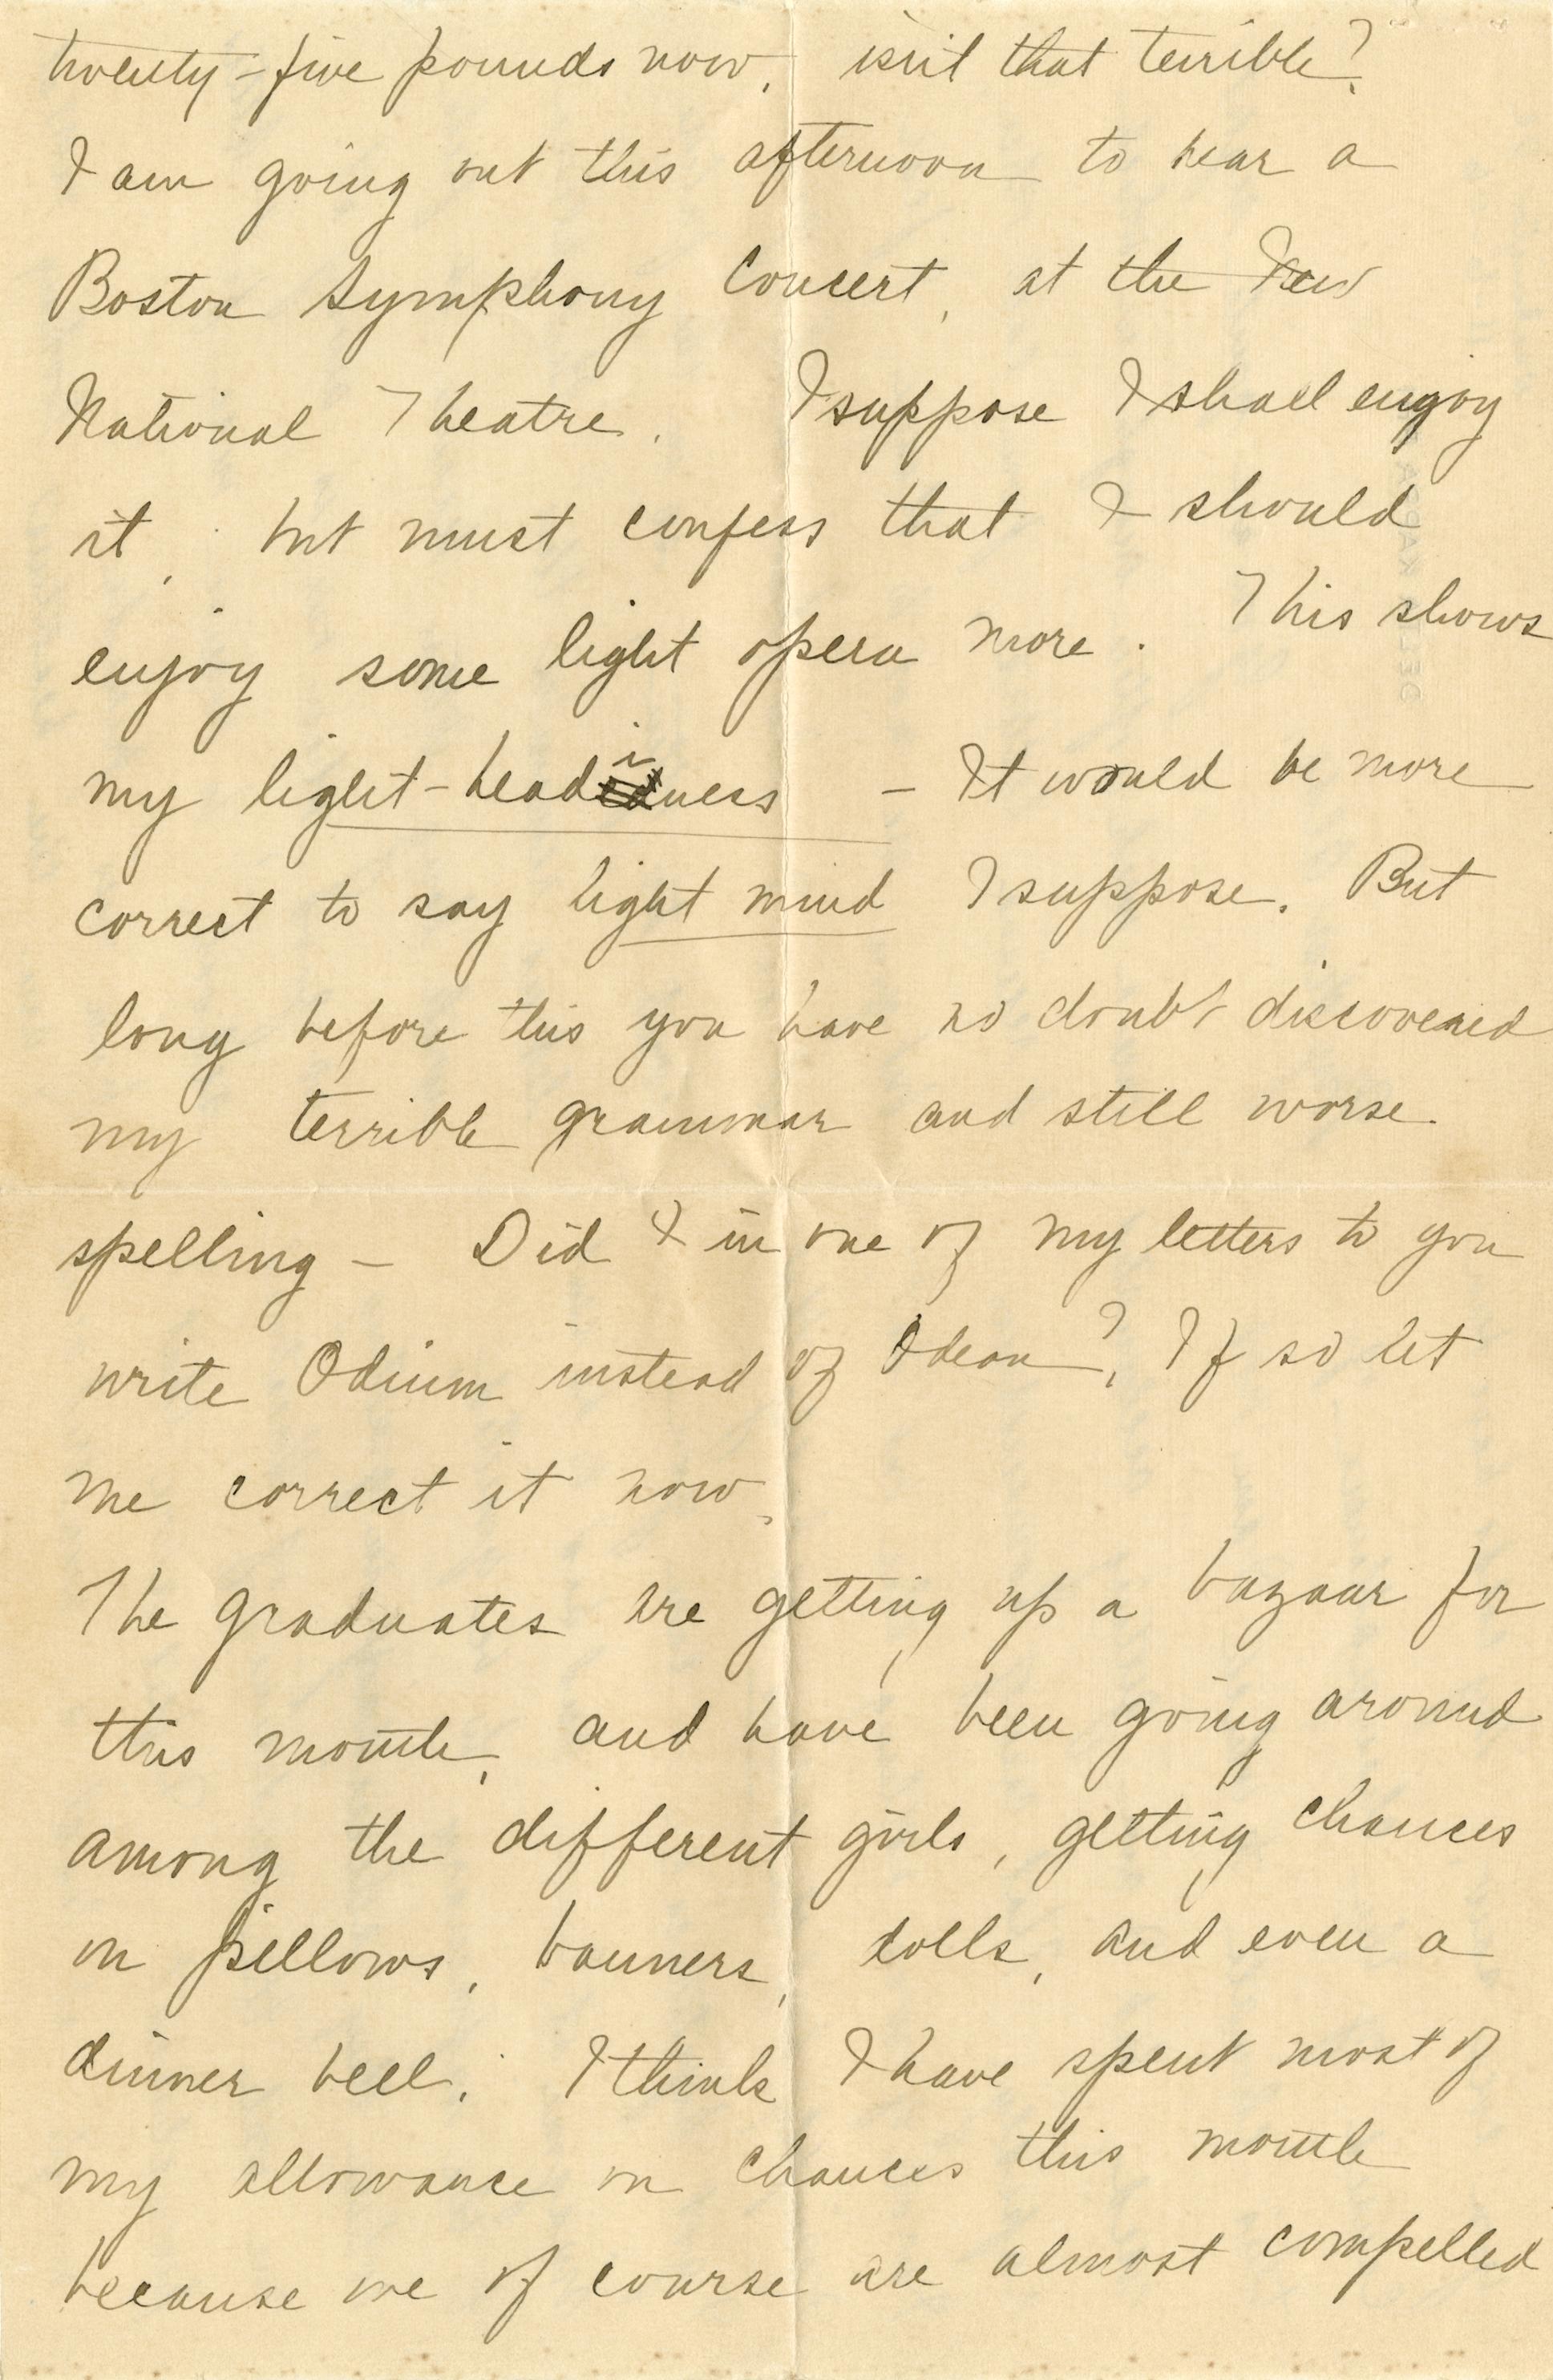 twenty-five pounds now, isn't that terrible?
I am going out this afternoon to hear a
Boston Symphony Concert, at the New
National Theatre. I suppose I shall enjoy
it, but must confess that I should
enjoy some light opera more. This shows
my light-headiness - It would be more
correct to say light mind I suppose. But
long before this you have no doubt discovered
my terrible grammar and still worse
spelling - Did I in one of my letters to you
write Odium instead of Odeon? If so let
me correct it now.
The graduates are getting up a bazaar for
this month, and have been going around
among the different girls, getting chances
on pillows, banners, dolls, and even a
dinner bell. I think I have spent most of
my allowance on chances this month
because we of course are almost compelled